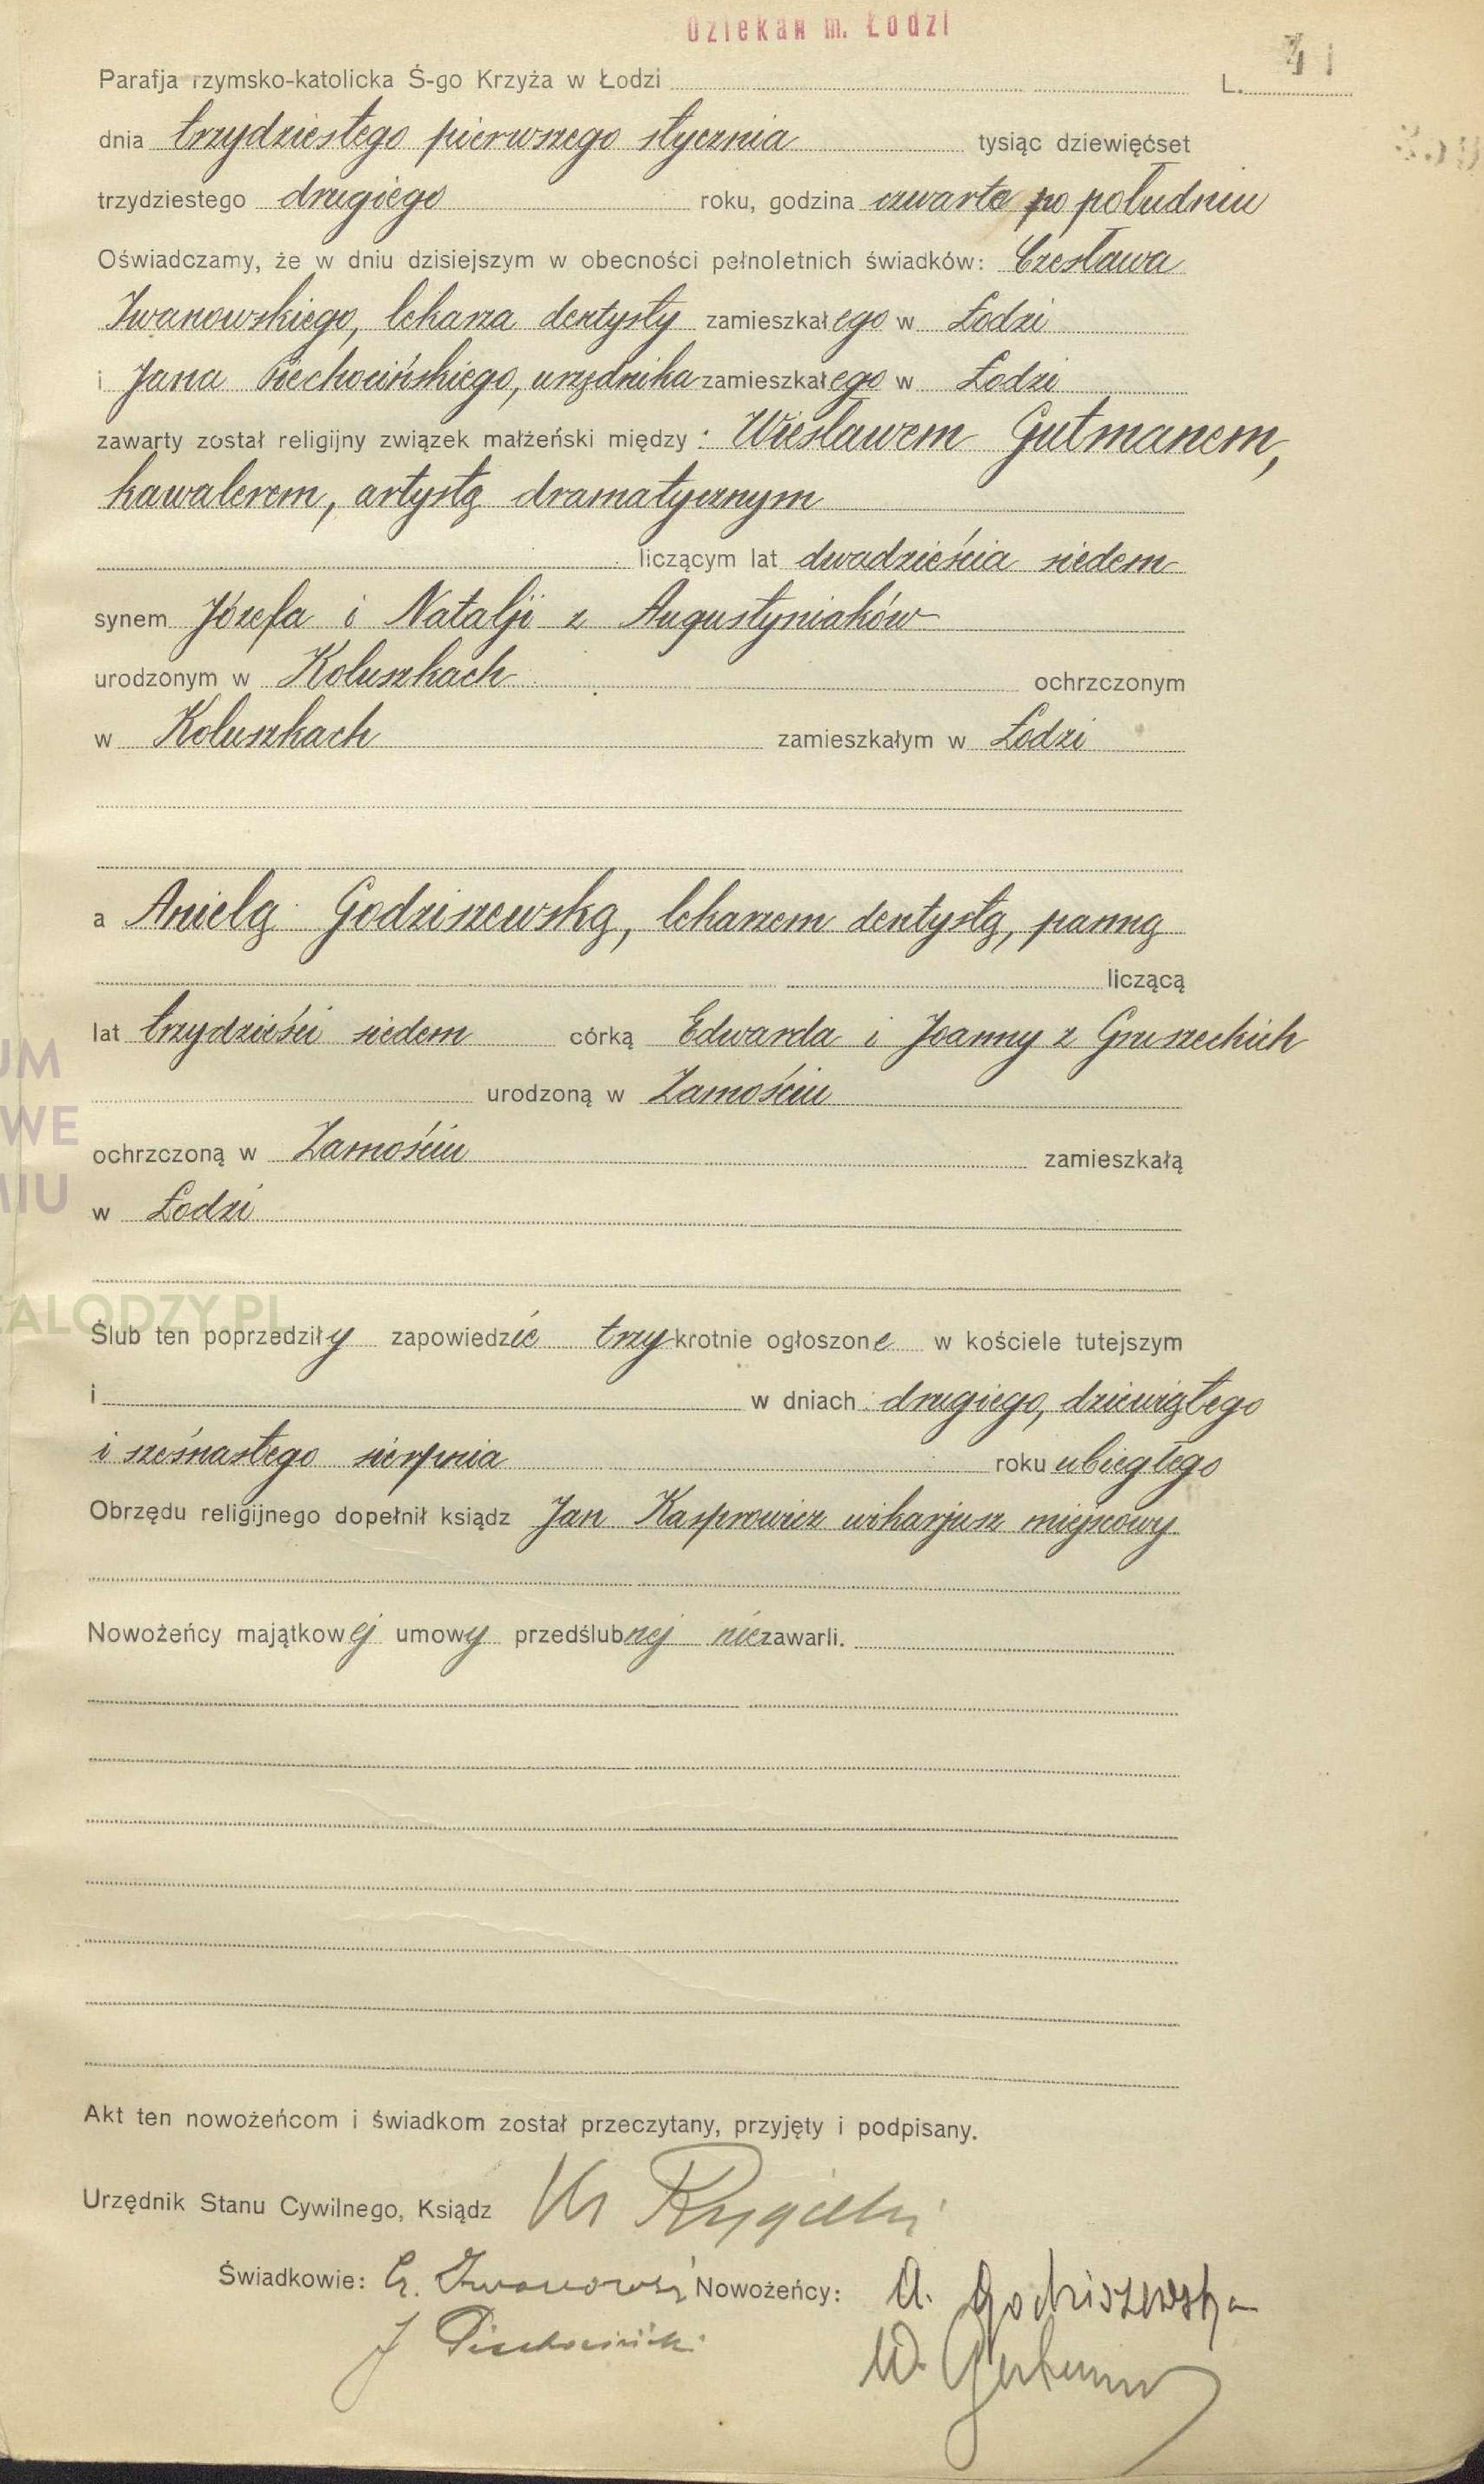 Dziekan m. Łodzi
Parafja rzymsko-katolicka Ś-go Krzyża w Łodzi L. 41
dnia trzydziestego pierwszego stycznia tysiąc dziewięćset
trzydziestego drugiego roku, godzina czwarta po południu
Oświadczamy, że w dniu dzisiejszym w obecności pełnoletnich świadków: Czesława
Iwanowskiego, lekarza dentysty zamieszkałego w Łodzi
i Jana Piechocińskiego, urzędnika zamieszkałego w Łodzi
zawarty został religijny związek małżeński między: Wiesławem Gutmanem,
kawalerem, artystą dramatycznym
liczącym lat dwadzieścia siedem
synem Józefa i Natalji z Augustyniaków
urodzonym w Koluszkach ochrzczonym
w Koluszkach zamieszkałym w Łodzi
a Anielą Godziszewską, lekarzem dentystą, panną
liczącą
lat trzydzieści siedem córką Edwarda i Joanny z Gruszeckich
urodzoną w Zamościu
ochrzczoną w Zamościu zamieszkałą
w Łodzi
Ślub ten poprzedziły zapowiedzie trzykrotnie ogłoszone w kościele tutejszym
i w dniach drugiego, dziewiątego
i szesnastego sierpnia roku ubiegłego
Obrzędu religijnego dopełnił ksiądz Jan Kasprowicz wikarjusz miejscowy
Nowożeńcy majątkowej umowy przedślubnej nie zawarli.
Akt ten nowożeńcom i świadkom został przeczytany, przyjęty i podpisany.
Urzędnik Stanu Cywilnego, Ksiądz
Świadkowie: Cz. Iwanowski Nowożeńcy: A. Godziszewska
J Piechociński W. Gutman
UM
WE
MIU
ZALODZY.PL